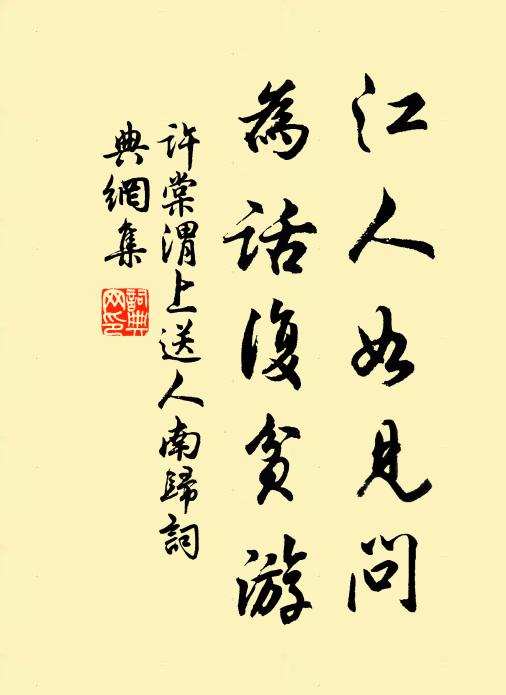 江人如見問
為話復貧游
許棠渭上送人南歸詞
典網集
詞典網印